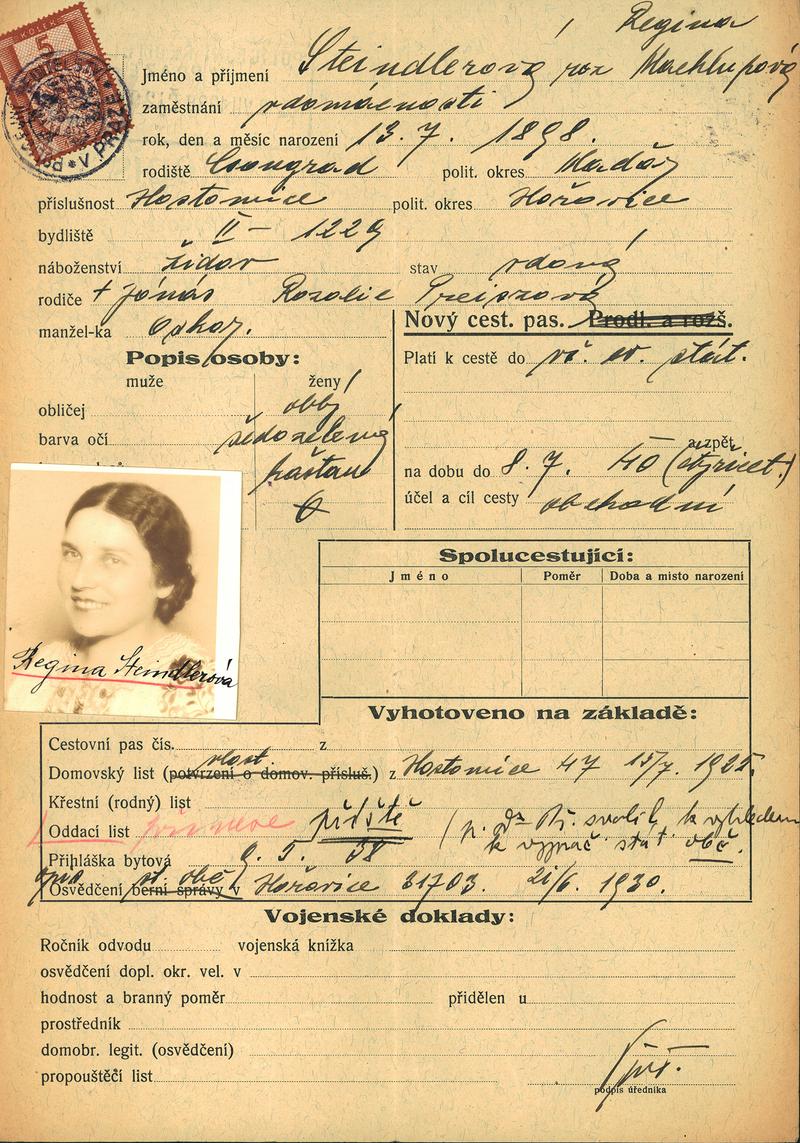 KOLEK
5
V PRAZE
Regina
Jméno a příjmení Steindlerová roz Machlupová
zaměstnání v domácnosti
rok, den a měsíc narození 13. 7. 1898.
rodiště Csongrad polit. okres Maďar
příslušnost Hostomice polit. okres Hořovice
bydliště II – 1229
náboženství židov stav vdová
rodiče + Jónás Rozalie Preiszová
manžel-ka Oskar.
Nový cest. pas. Prodl. a rozš.
Popis osoby:
muže ženy
Platí k cestě do vš. ev. stát.
obličej oblý
barva očí šedozelená
kaštan
0
a zpět
na dobu do 8. 7. 40 (čtyřicet.)
účel a cíl cesty obchodní
Regina Steindlerová
Spolucestující:
Jméno Poměr Doba a místo narození
Vyhotoveno na základě:
Cestovní pas čís. z
vlast.
Domovský list (potvrzení o domov. přísluš.) z Hostomice 47 15/7. 1925.
Křestní (rodný) list
Oddací list příště (p. Dr. svolil k vyhledem
k vyznač stát obč.
Přihláška bytová 9. 5. 38
st. obč
Osvědčení berní správy v Hořovice 31703. 21/6. 1930.
Vojenské doklady:
Ročník odvodu vojenská knížka
osvědčení dopl. okr. vel. v
hodnost a branný poměr přidělen u
prostředník
domobr. legit. (osvědčení)
propouštěčí list
podpis úředníka